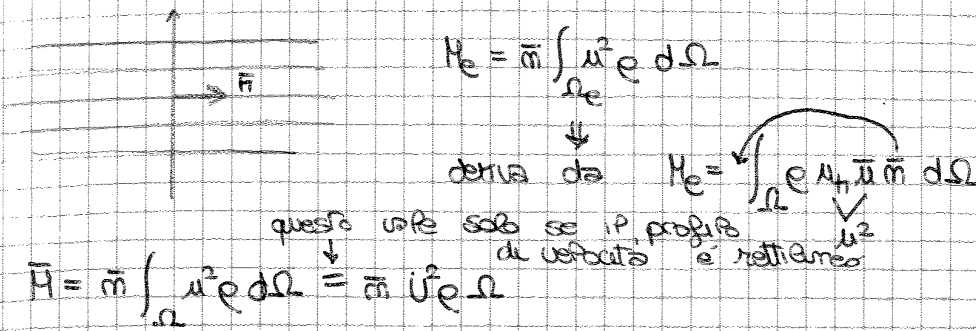 n̄
M_e = n̄ ∫_Ωe u² ρ dΩ
⇓
deriva da M_e = ∫_Ω ρ u_n ū n̄ dΩ
u²
questo vale solo se il profilo
di velocità è rettilineo
M̄ = n̄ ∫_Ω u² ρ dΩ = n̄ U² ρ Ω